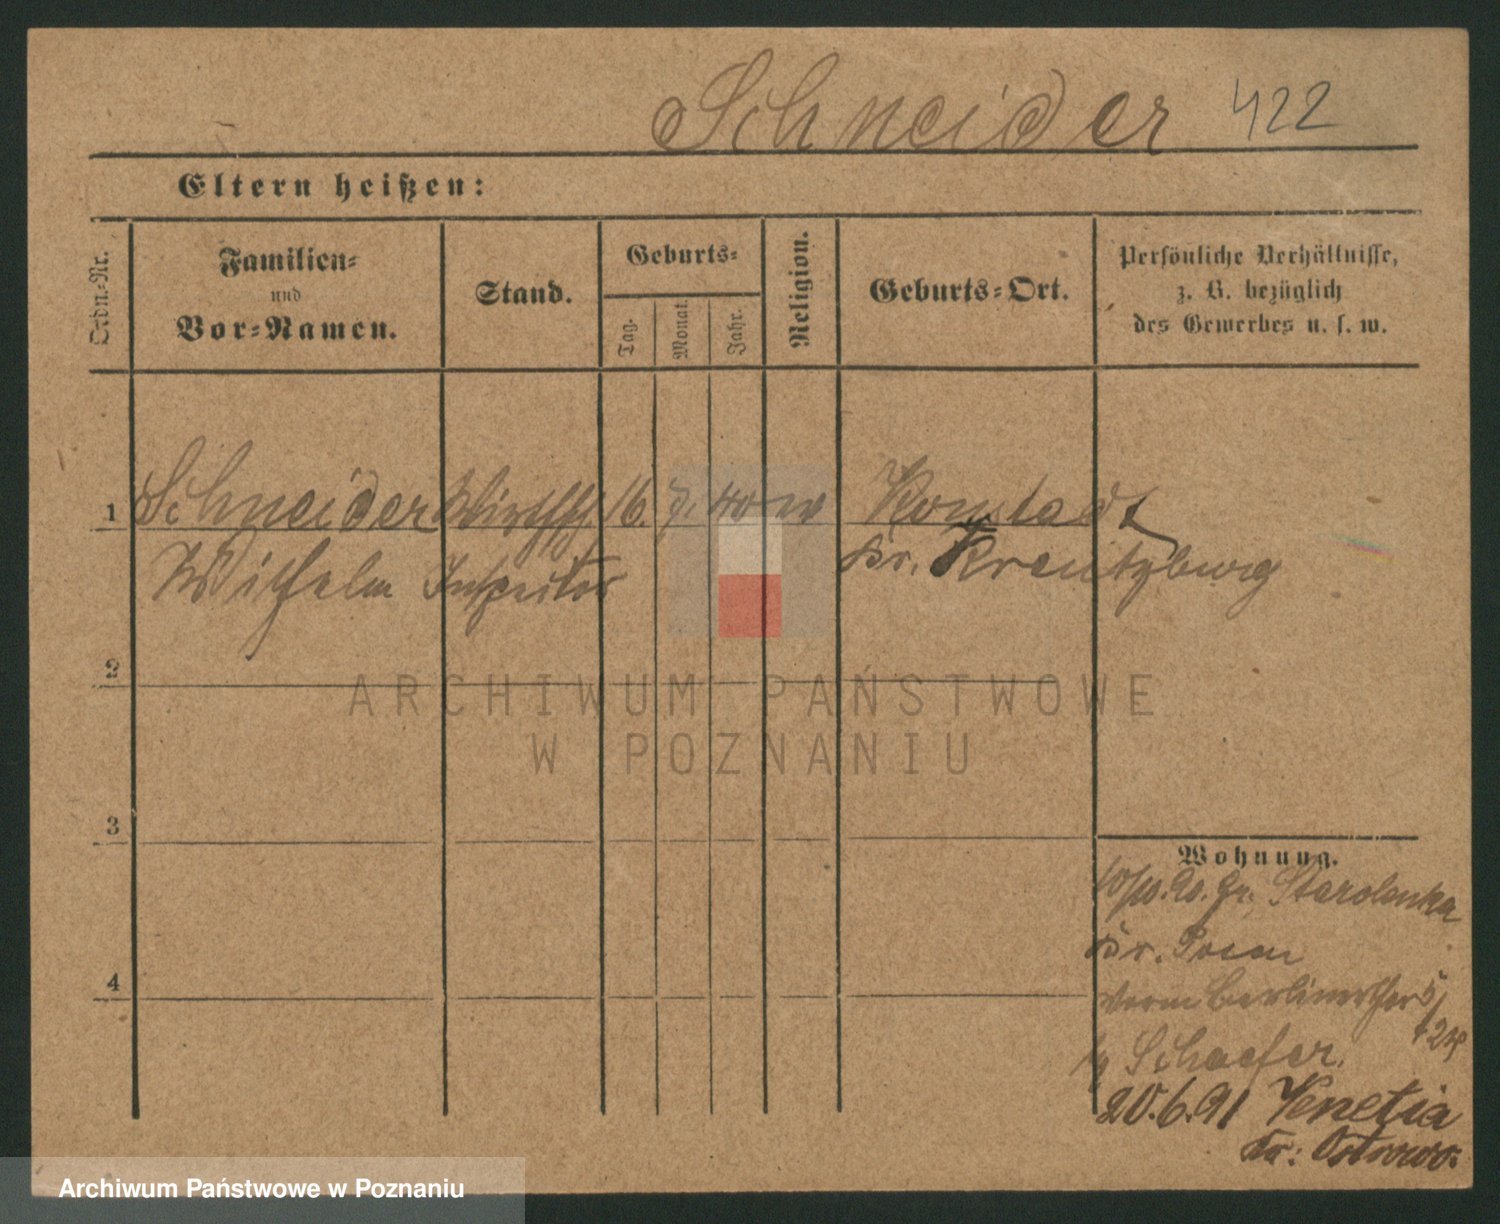 Schneider 422
Eltern heißen:
Ordn.-Nr.
Familien-
und
Vor-Namen.
Stand.
Geburts-
Tag.
Monat.
Jahr.
Religion.
Geburts-Ort.
Persönliche Verhältnisse,
z. B. bezüglich
des Gewerbes u. s. w.
1 Schneider Wirthsch 16. 7. 40 Konstadt
Wilhelm Inspector Kr. Kreutzburg
2
ARCHIWUM PAŃSTWOWE
W POZNANIU
3
Wohnung.
10/10. 90. Gr. Starolenka
Kr. Posen
4
Berlinerthor
Schaefer.
20.6.91 Venetia
Kr: Ostrowo.
Archiwum Państwowe w Poznaniu